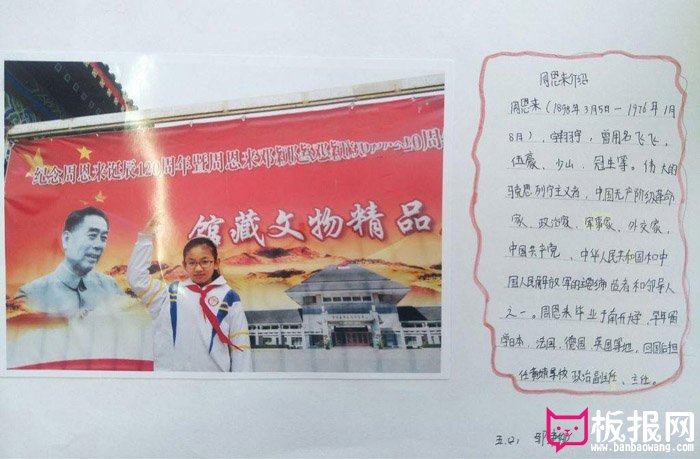 纪念周恩来诞辰120周年暨周恩来邓颖超
馆藏文物精品
周恩来介绍
周恩来(1898年3月5日—1976年1月
8日),字翔宇,曾用名飞飞、
伍豪、少山、冠生等。伟大的
马克思列宁主义者,中国无产阶级革命
家、政治家、军事家、外交家,
中国共产党、中华人民共和国和中
国人民解放军的 者和领导人
之一。周恩来毕业于南开大学,早年留
学日本、法国、德国、英国等地,回国后担
任黄埔军校政治副主任、主任。
五.
板报网
www.banbaowang.com